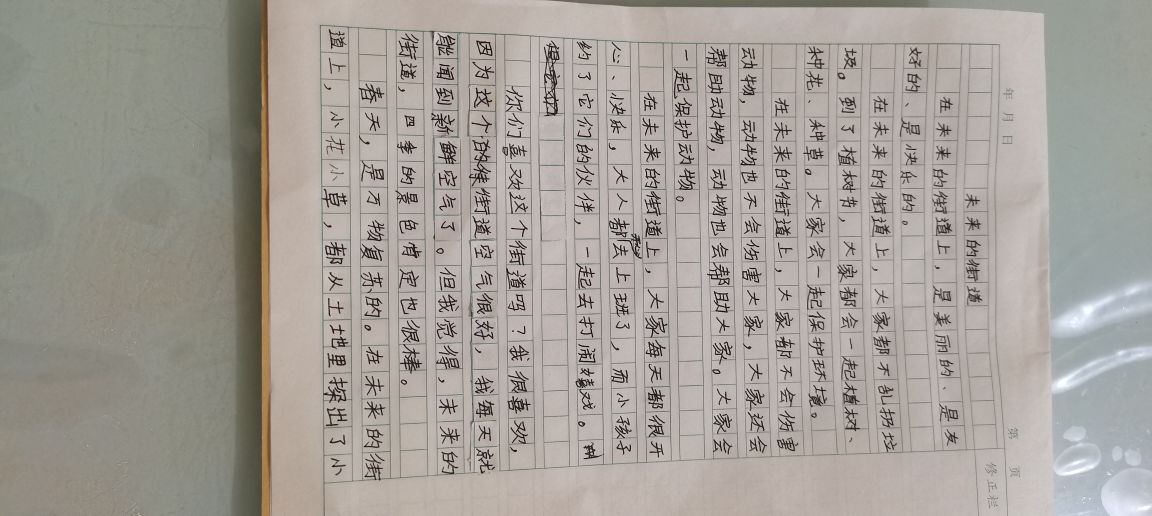 年 月 日
第 页
修正栏
未来的街道
在未来的街道上，是美丽的、是友
好的、是快乐的。
在未来的街道上，大家都不乱扔垃
圾。到了植树节，大家都会一起植树、
种花、种草。大家会一起保护环境。
在未来的街道上，大家都不会伤害
动物，动物也不会伤害大家，大家还会
帮助动物，动物也会帮助大家。大家会
一起保护动物。
在未来的街道上，大家每天都很开
心、快乐，大人都去上班了，而小孩子
约了它们的伙伴，一起去打闹嬉戏。
你们喜欢这个街道吗？我很喜欢，
因为这个的街道空气很好，我每天就
能闻到新鲜空气了。但我觉得，未来的
街道，四季的景色肯定也很棒。
春天，是万物复苏的。在未来的街
道上，小花小草，都从土地里探出了小